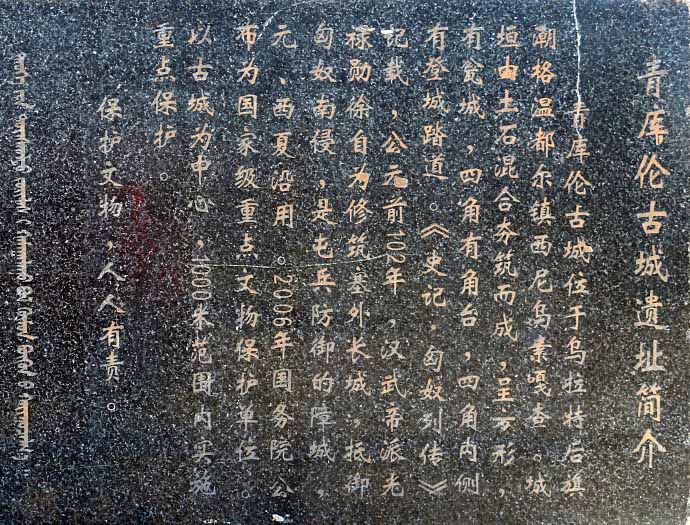 青库伦古城遗址简介
青库伦古城位于乌拉特后旗
潮格温都尔镇西尼乌素嘎查。城
垣由土石混合夯筑而成,呈方形,
有瓮城,四角有角台,四角内侧
有登城踏道。《史记·匈奴列传》
记载,公元前102年,汉武帝派光
禄勋徐自为修筑塞外长城,抵御
匈奴南侵,是屯兵防御的障城,
元、西夏沿用。2006年国务院公
布为国家级重点文物保护单位。
以古城为中心,1000米范围内实施
重点保护。
保护文物,人人有责。